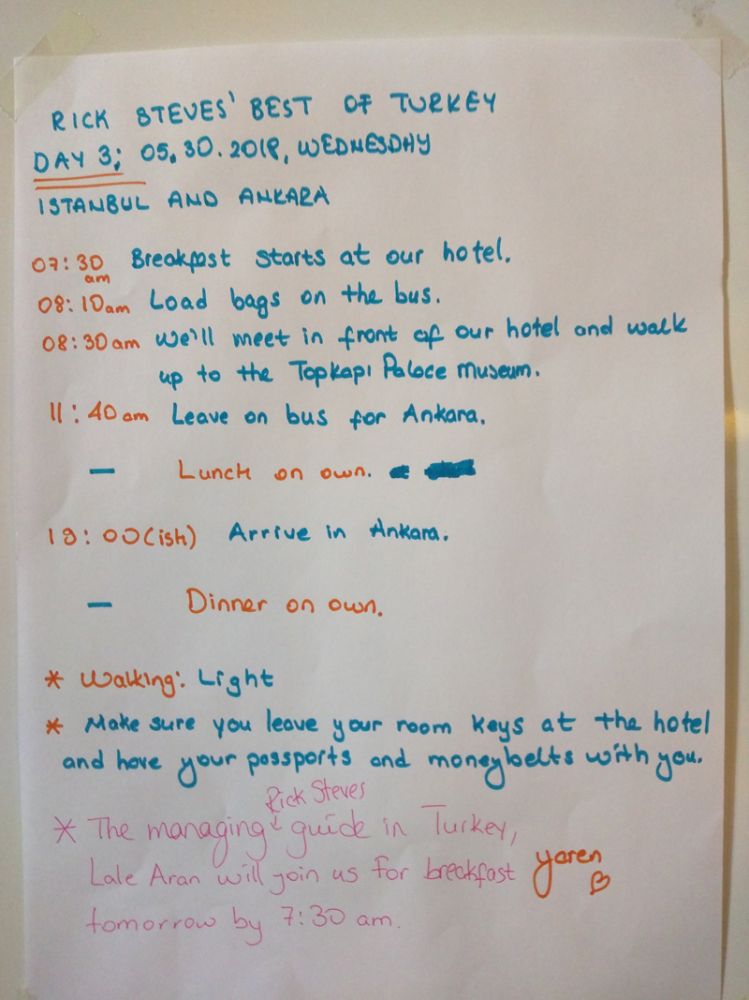 RICK STEVES' BEST OF TURKEY
DAY 3; 05.30.2018, WEDNESDAY
ISTANBUL AND ANKARA
07:30 am Breakfast starts at our hotel.
08:10am Load bags on the bus.
08:30am we'll meet in front of our hotel and walk
up to the Topkapı Palace Museum.
11:40am Leave on bus for Ankara.
— Lunch on own.
19:00(ish) Arrive in Ankara.
— Dinner on own.
* Walking: Light
* Make sure you leave your room keys at the hotel
and have your passports and moneybelts with you.
Rick Steves
* The managing guide in Turkey,
Lale Aran will join us for breakfast yaren
tomorrow by 7:30 am.